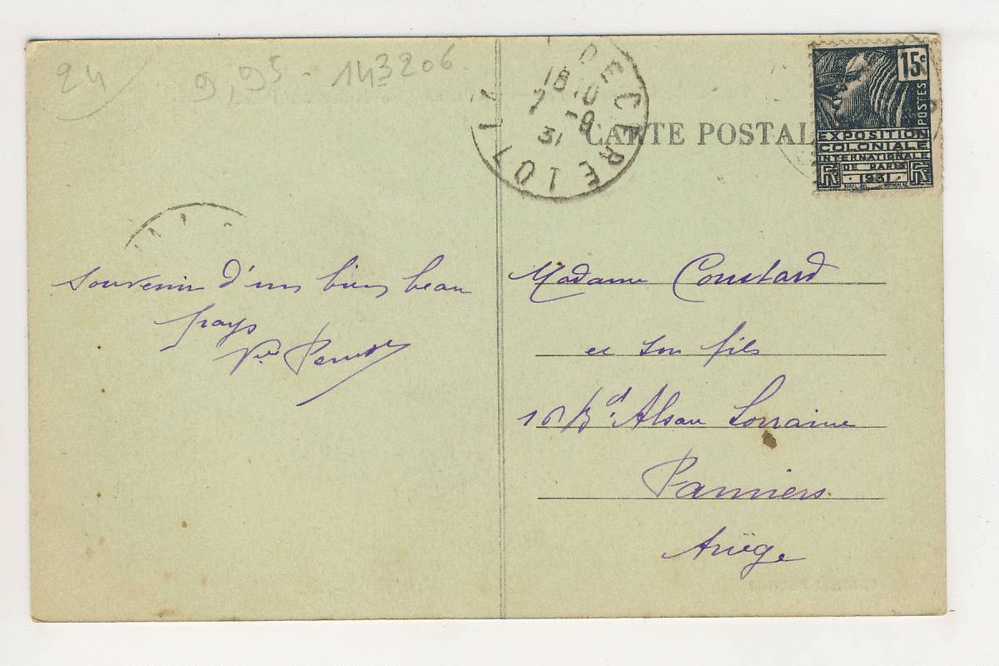 24
9,95 - 143206
CARTE POSTALE
18 10
7 - 9
31
CERE LOT
15c
POSTES
EXPOSITION
COLONIALE
INTERNATIONALE
DE PARIS
1931
RF RF
Souvenir d'un bien beau
pays
Madame Coustard
et son fils
Bd. Alsace Lorraine
Pamiers
Ariège